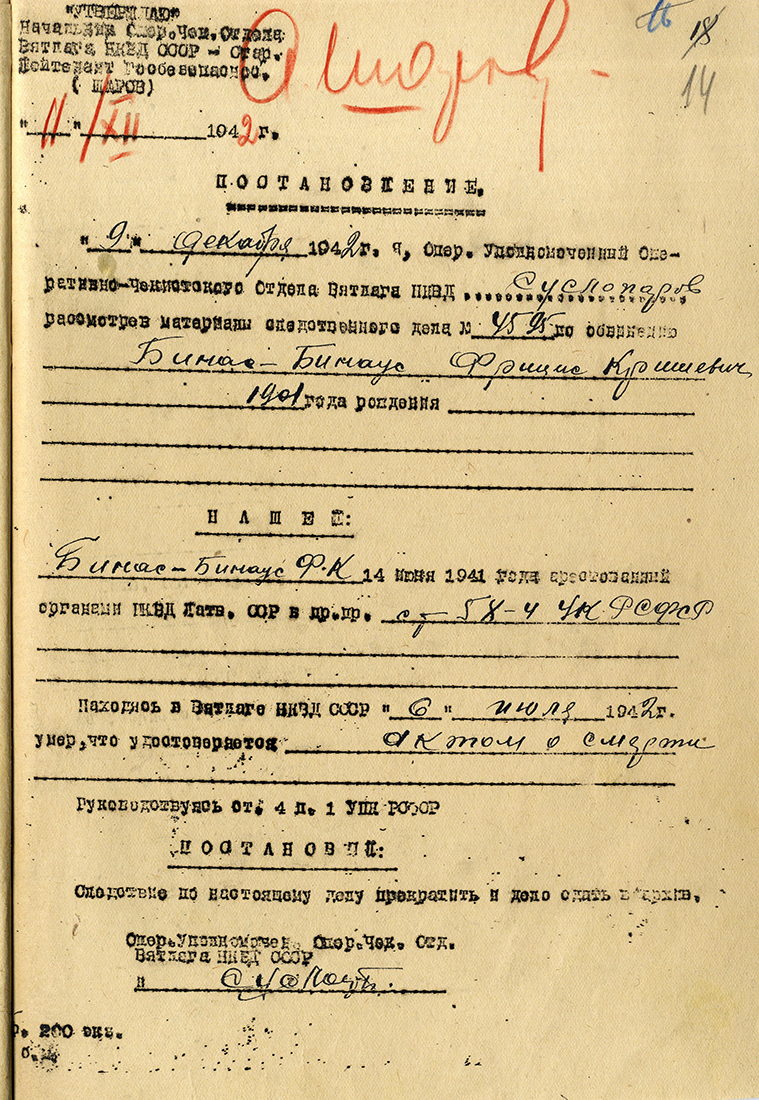 "УТВЕРЖДАЮ"
Начальник Опер.Чек.Отдела
Вятлага НКВД СССР - Стар.
Лейтенант Госбезопаснос.
( ШАРОВ)
18
14
"11" XII 1942г.
ПОСТАНОВЛЕНИЕ.
"9" декабря 1942г. я, Опер. Уполномоченный Опе-
ративно-Чекистского Отдела Вятлага НКВД Суслопаров
рассмотрев материалы следственного дела № 4595 по обвинению
Бинас-Бинаус Фрицис Кришевич
1901 года рождения
НАШЕЛ:
Бинас-Бинаус Ф.К 14 июня 1941 года арестованный
органами НКВД Латв. ССР в пр.пр. ст 58-4 УК РСФСР
Находясь в Вятлаге НКВД СССР "6" июля 1942г.
умер,что удостоверяется актом о смерти
Руководствуясь ст. 4 п. 1 УПК РСФСР
ПОСТАНОВИЛ:
Следствие по настоящему делу прекратить и дело сдать в архив.
Опер.Уполномочен. Опер.Чек. Отд.
Вятлага НКВД СССР
200 экз.